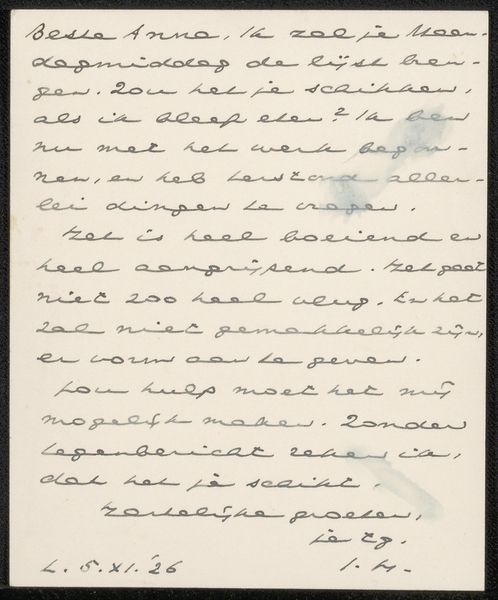 Beste Anna, Ik zal je Maan-
dagmiddag de lijst bren-
gen. Zou het je schikken,
als ik bleef eten? Ik ben
nu met het werk begon-
nen, en heb terstond aller-
lei dingen te vragen.
Het is heel boeiend en
heel aangrijpend. Het gaat
niet zoo heel vlug. En het
zal niet gemakkelijk zijn,
er vorm aan te geven.
Jouw hulp moet het mij
mogelijk maken. Zonder
tegenbericht reken ik,
dat het je schikt.
Hartelijke groeten,
je tg.
I. H.
L. 5. XI. '26